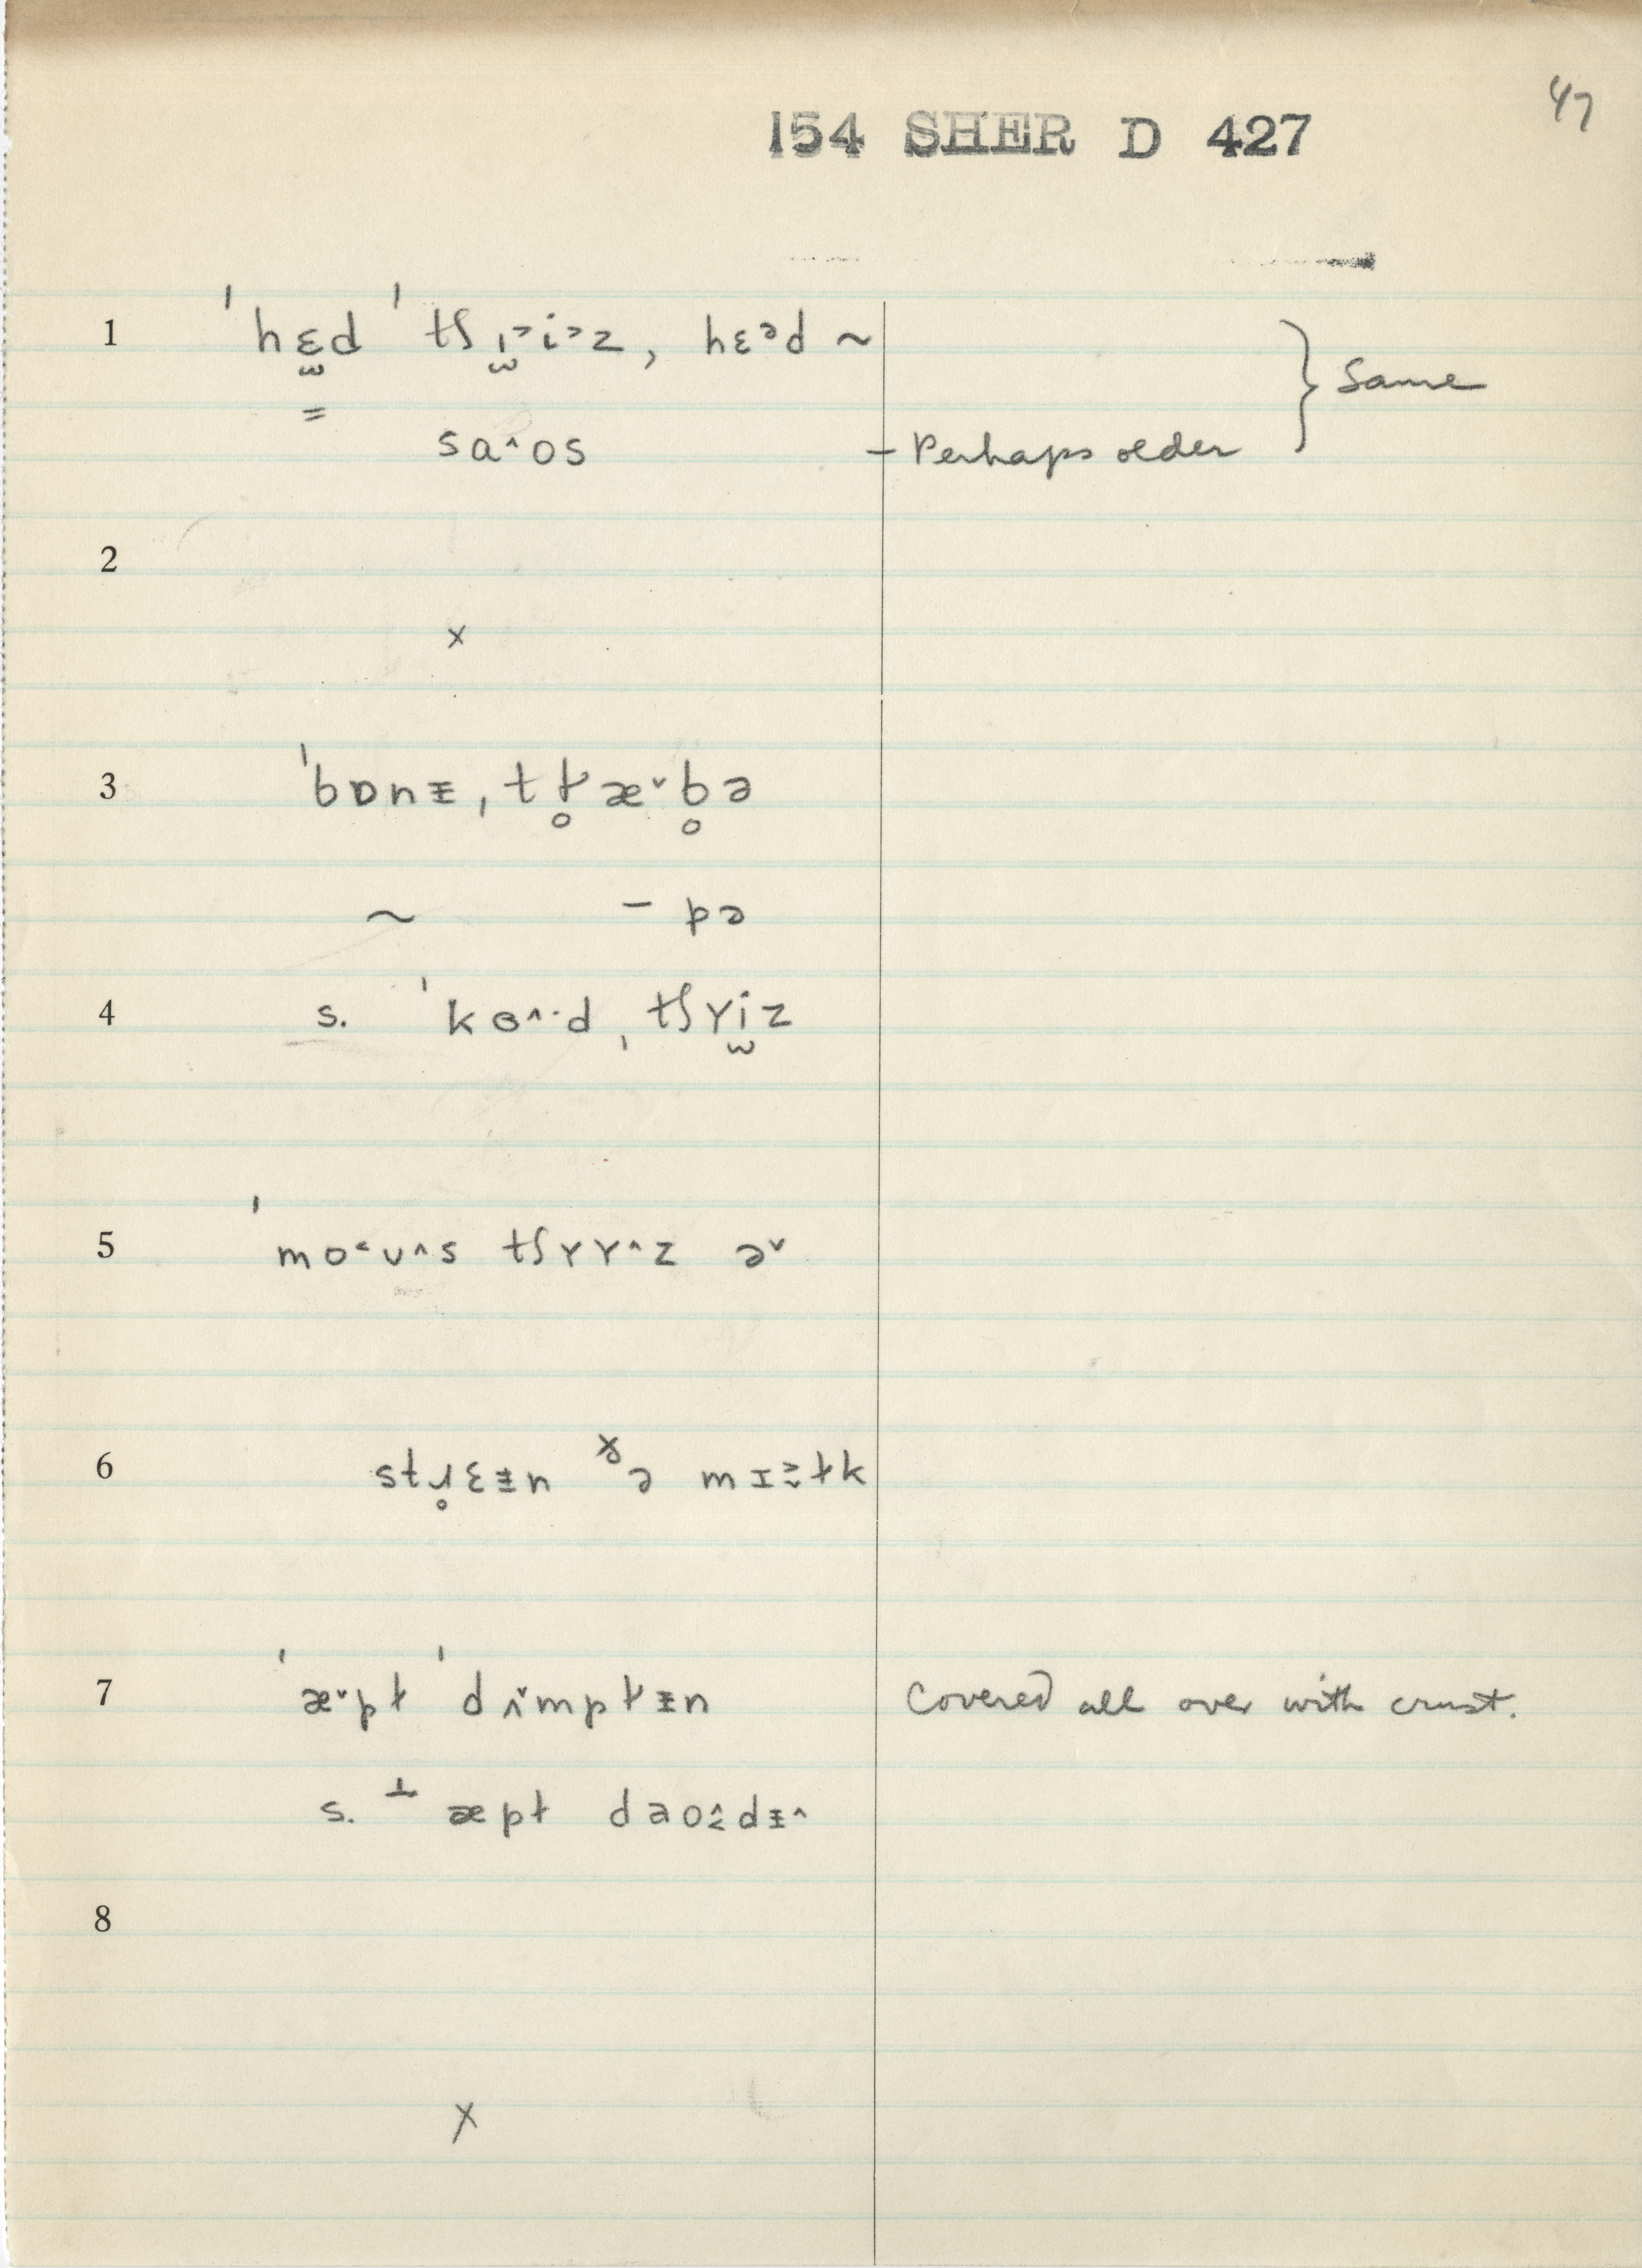 47
154 SHER D 427
1 ˈhɛ̫d ˈtʃɪ̫˃i˃z, hɛᵊd ~
} Same
=
saˆos – Perhaps older
2
×
3 ˈbɒnᵻ, tɫ̥æˇb̥ə
~ – pə
4 s. ˈkɵˆ·d ˌtʃɤi̫z
5 ˈmo˂ʊˆs tʃɤɤˆz əˇ
6 stɹ̥ɛᵻn ðə mɪɫk
7 ˈæˇpɫ ˈdʌˇmpɫᵻn Covered all over with crust.
s. ⊥ æpɫ dao dᵻˆ
8
×